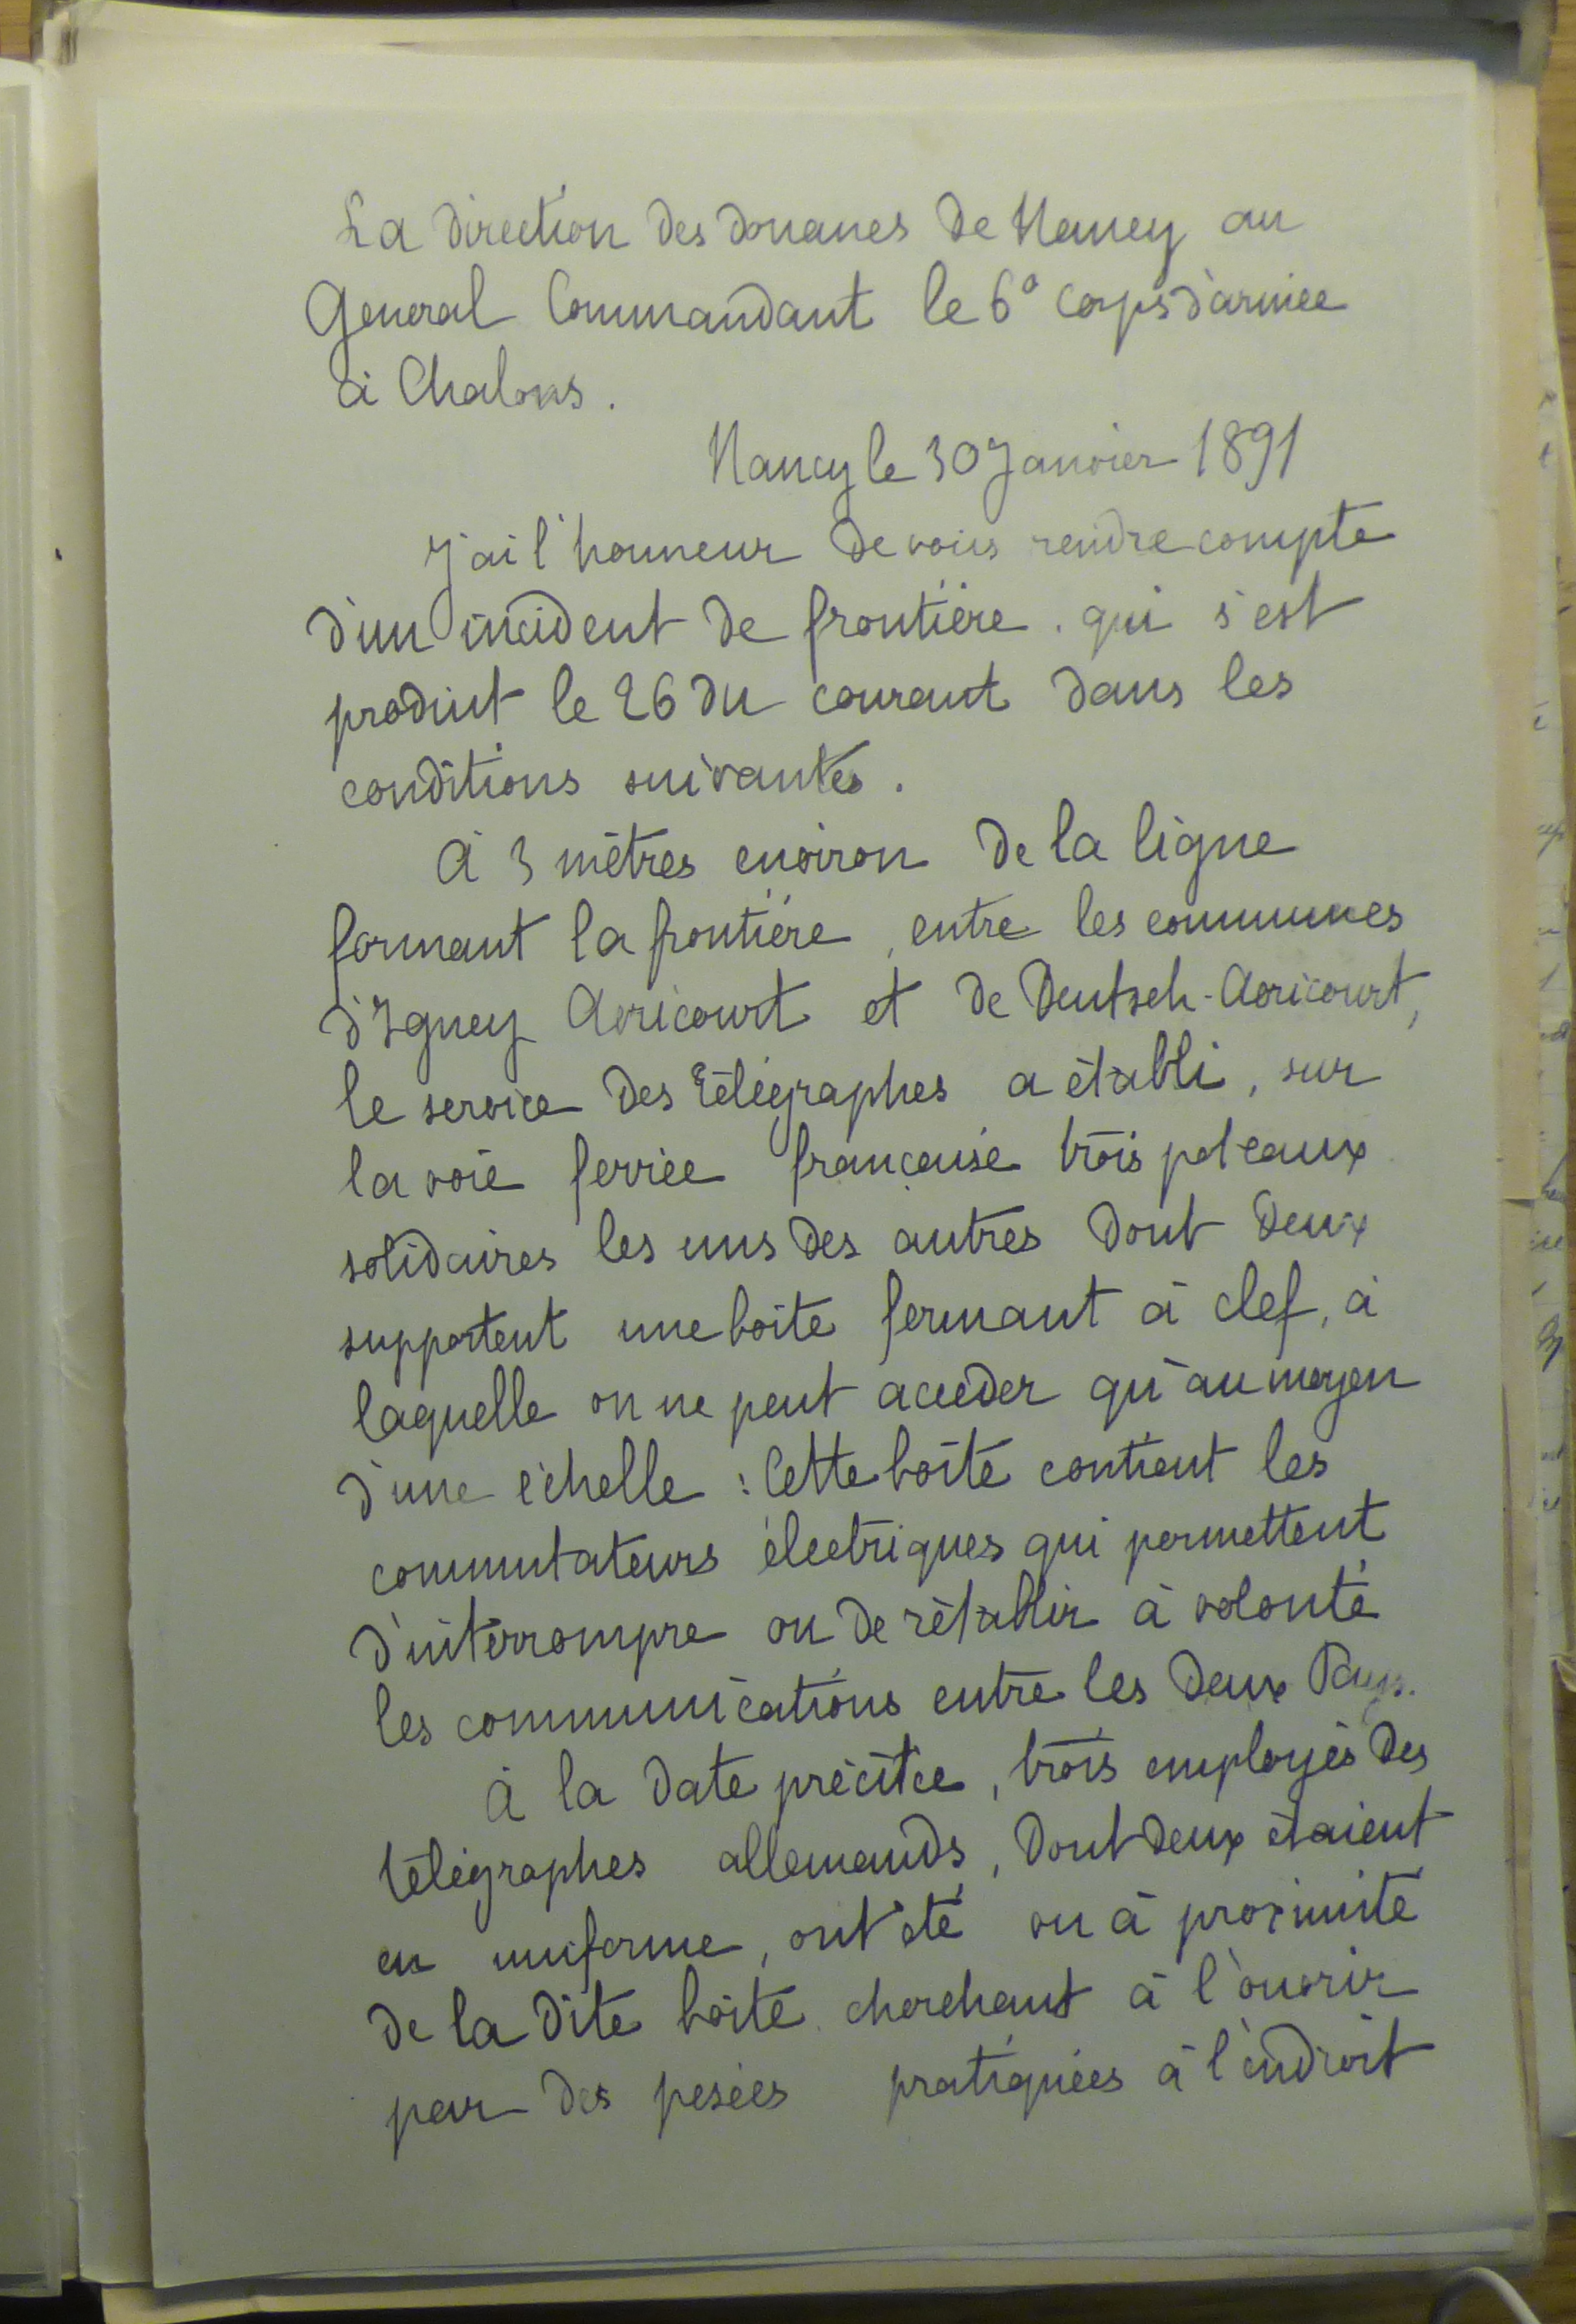 La direction des douanes de Nancy au
General Commandant le 6° corps d'armée
à Chalons.
Nancy le 30 Janvier 1891
J'ai l'honneur de vous rendre compte
d'un incident de frontière. qui s'est
produit le 26 du courant dans les
conditions suivantes.
À 3 mètres environ de la ligne
formant la frontière, entre les communes
d'Igney Avricourt et de Deutsch-Avricourt,
le service des télégraphes a établi, sur
la voie ferrée française trois poteaux
solidaires les uns des autres dont deux
supportent une boite fermant à clef, à
laquelle on ne peut acceder qu'au moyen
d'une échelle : Cette boîte contient les
commutateurs électriques qui permettent
d'interrompre ou de rétablir à volonté
les communications entre les deux Pays.
À la date précitée, trois employés des
télégraphes allemands, dont deux étaient
en uniforme, ont été vu à proximité
de la dite boite cherchant à l'ouvrir
par des pesées pratiquées à l'endroit